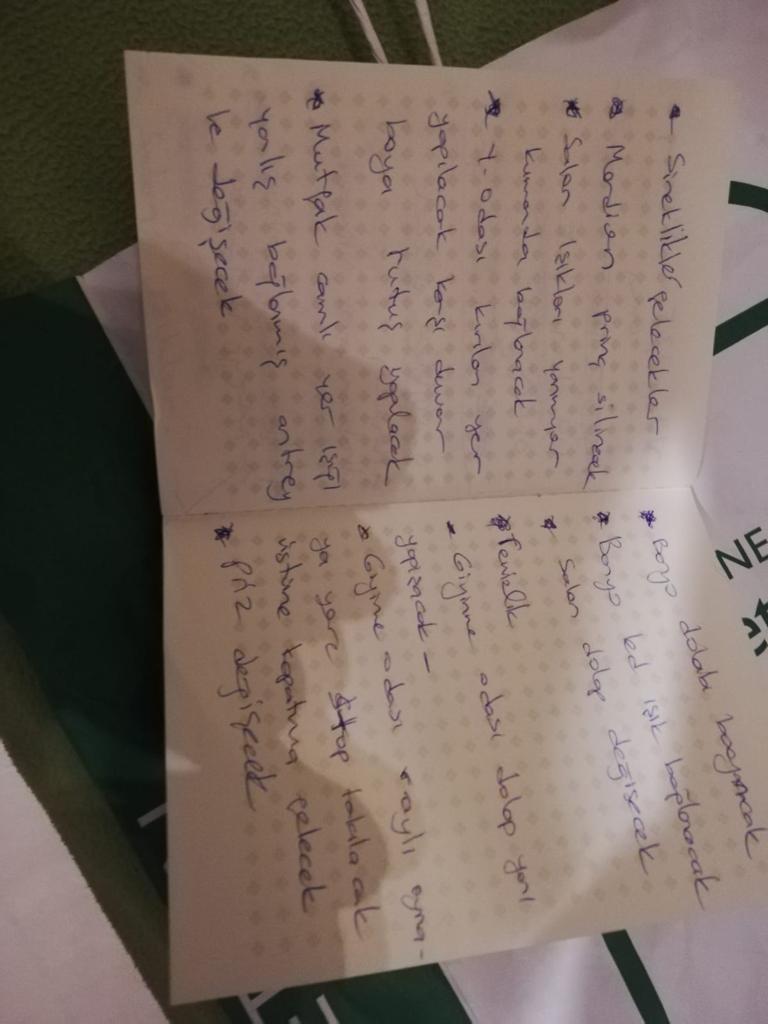 * Sineklikler gelecekler
* Merdiven pirinç silinecek
* Salon ışıkları yanmıyor
kumanda bağlanacak
* Y. odası kırılan yer
yapılacak karşı duvar
boya rutuş yapılacak
* Mutfak camlı yer ışığı
yanlış bağlanmış antrey
le değişecek
* Banyo dolabı boyanacak
* Banyo led ışık bağlanacak
* Salon dolap değişecek
* Perdelik
* Giyinme odası dolap yanı
yapışacak –
* Giyinme odası raylı ayna-
ya yere stop takılacak
üstüne kapatma gelecek
* Priz değişecek
NE